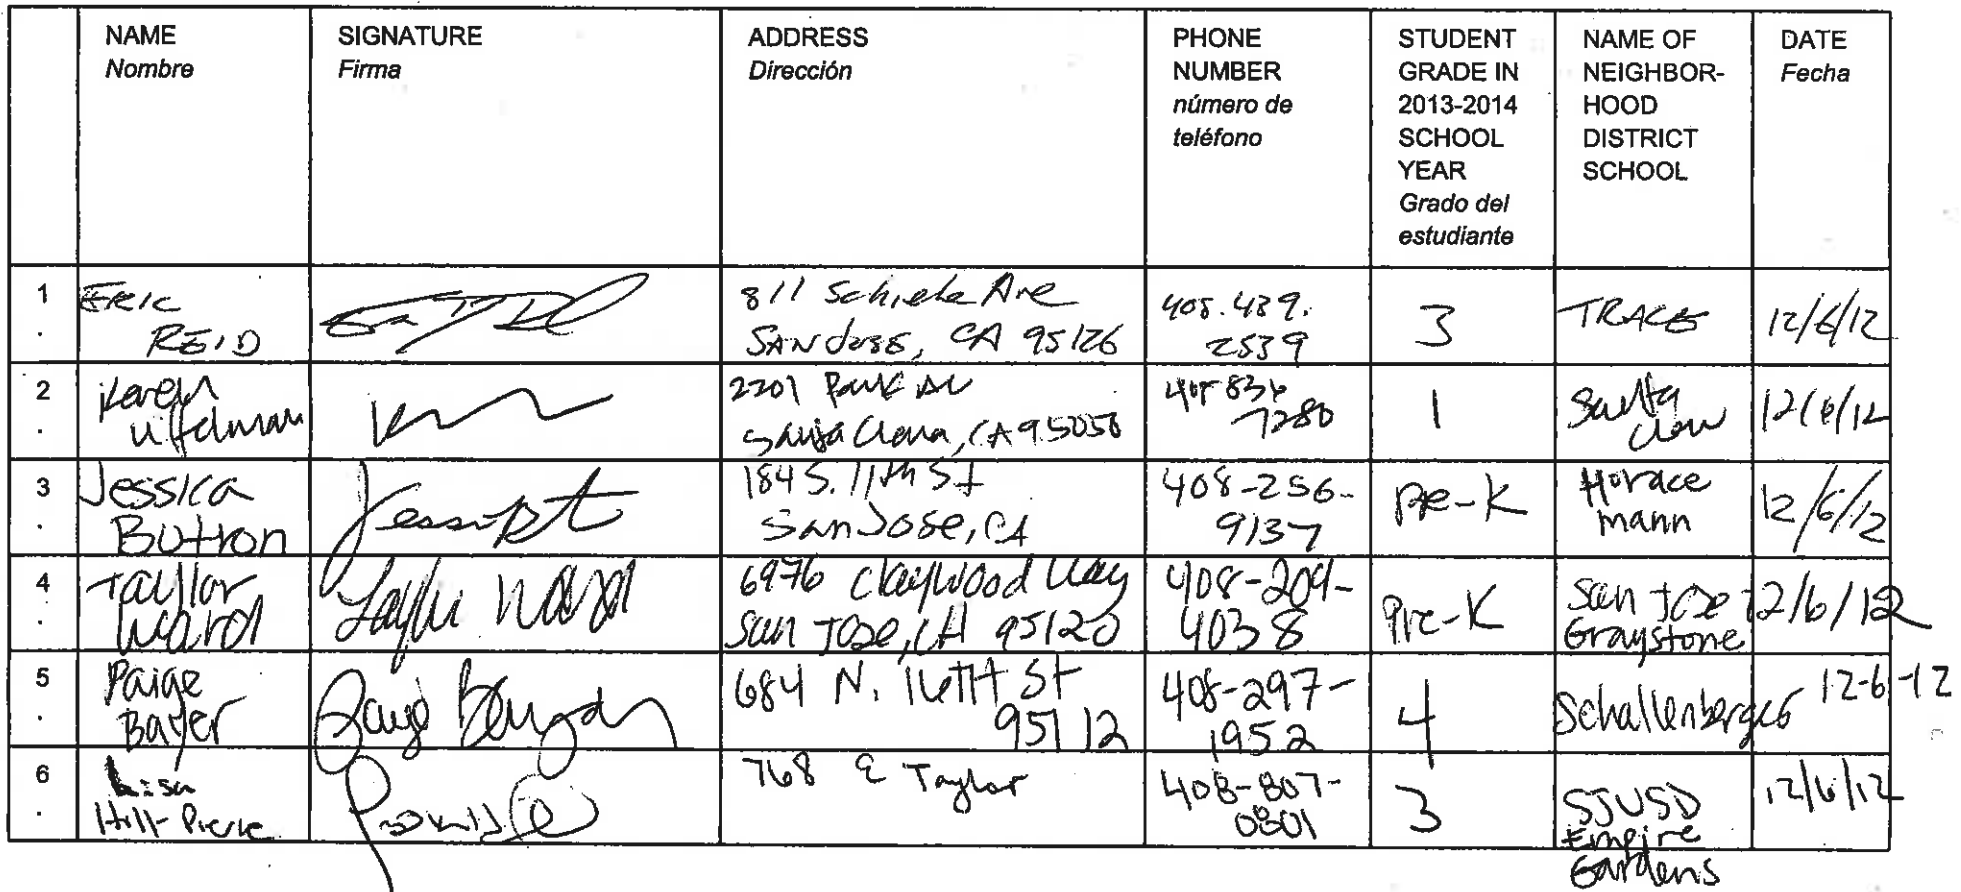 NAME
Nombre
SIGNATURE
Firma
ADDRESS
Dirección
PHONE
NUMBER
número de
teléfono
STUDENT
GRADE IN
2013-2014
SCHOOL
YEAR
Grado del
estudiante
NAME OF
NEIGHBOR-
HOOD
DISTRICT
SCHOOL
DATE
Fecha
1
.
ERIC
REID
811 Schiele Ave
SAN JOSE, CA 95126
408.439.
2539
3
TRACE
12/6/12
2
.
Karen
Uffelman
2201 Park Av
Santa Clara, CA 95050
408 836
7280
1
Santa
Clara
12/6/12
3
.
Jessica
Butron
184 S. 11th St
San Jose, CA
408-256-
9137
pre-K
Horace
mann
12/6/12
4
.
Taylor
Ward
Taylor Ward
6976 Claywood Way
San Jose, CA 95120
408-209-
4038
Pre-K
San Jose
Graystone
12/6/12
5
.
Paige
Bayer
684 N. 16TH St
95112
408-297-
1952
4
Schallenberger
12-6-12
6
.
Lisa
Hill-Pierre
768 E Taylor
408-807-
0801
3
SJUSD
Empire
Gardens
12/6/12